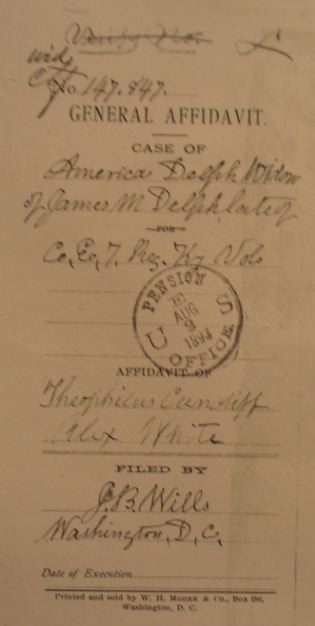 wid
Ctf No. 147.847.
GENERAL AFFIDAVIT.
CASE OF
America Delph, Widow
of James M Delph, late of
FOR
Co, E, 7, Reg. Ky Vols
U S PENSION OFFICE.
AUG
3
1893
AFFIDAVIT OF
Theophilus Cundiff
Alex White
FILED BY
J. B. Wills
Washington, D, C,
Date of Execution
Printed and sold by W. H. MOORE & Co., Box 696,
Washington, D. C.